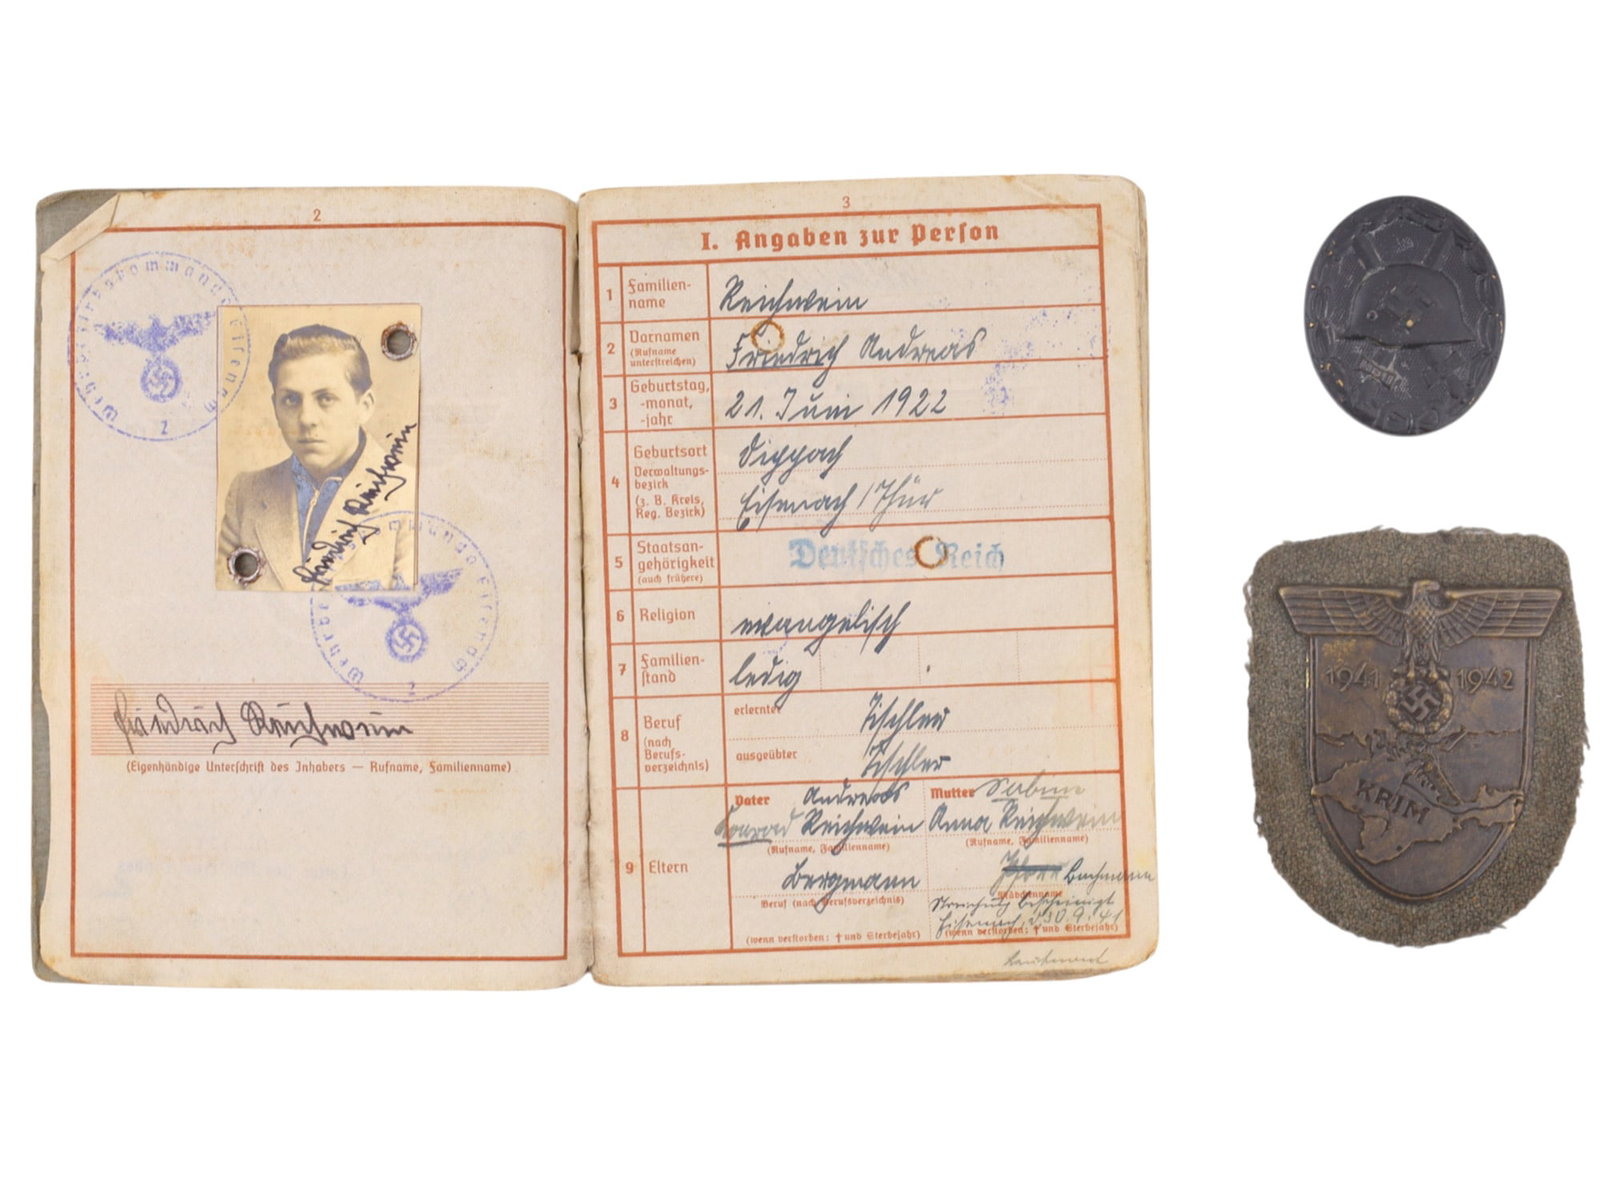 2
Wehrbezirkskommando Eisenach
2
Friedrich Reichwein
Wehrbezirkskommando Eisenach
2
Friedrich Reichwein
(Eigenhändige Unterschrift des Inhabers — Rufname, Familienname)
3
I. Angaben zur Person
1 Familien-
name
Reichwein
2 Vornamen
(Rufname
unterstreichen)
Friedrich Andreas
3 Geburtstag,
-monat,
-jahr
21. Juni 1922
4 Geburtsort
Verwaltungs-
bezirk
(z. B. Kreis,
Reg. Bezirk)
Dippach
Eisenach / Thür
5 Staatsan-
gehörigkeit
(auch frühere)
Deutsches Reich
6 Religion
evangelisch
7 Familien-
stand
ledig
8 Beruf
(nach
Berufs-
verzeichnis)
erlernter
Tischler
ausgeübter
Tischler
9 Eltern
Vater Andreas
Konrad Reichwein
(Rufname, Familienname)
Bergmann
Beruf (nach Berufsverzeichnis)
(wenn verstorben: † und Sterbejahr)
Mutter Sabine
Anna Reichwein
(Rufname, Familienname)
Buchmann
Mädchenname
Streichung bescheinigt
Eisenach, d 30.9.41
(wenn verstorben: † und Sterbejahr)
1941 1942
KRIM